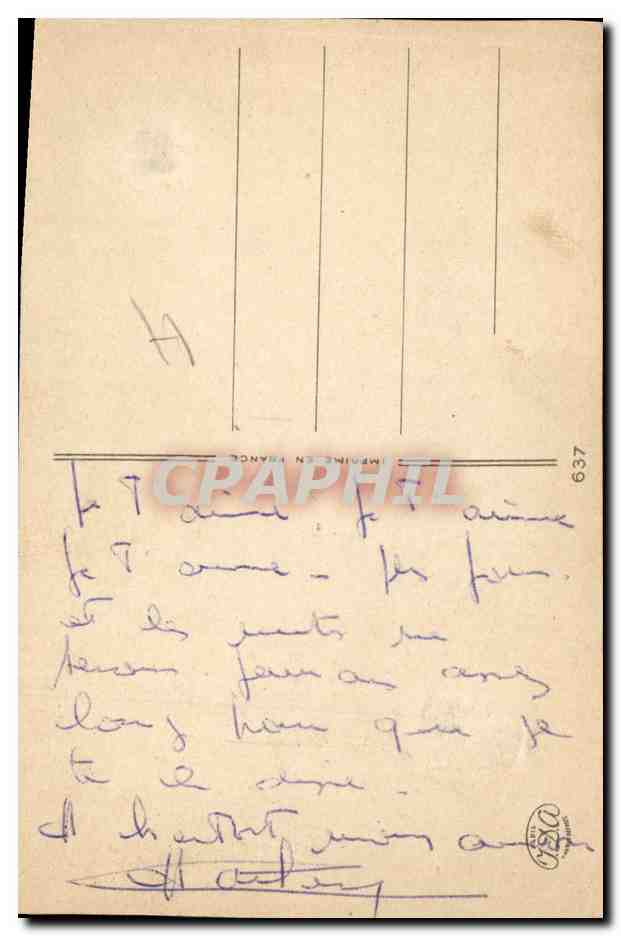 H
IMPRIMÉ EN FRANCE
637
CPAPHIL
Je T'aime, je T'aime
Je T'aime - les jours
et les nuits ne
seront jamais assez
long pour que je
te le dise.
A bientôt mon amour
PARIS